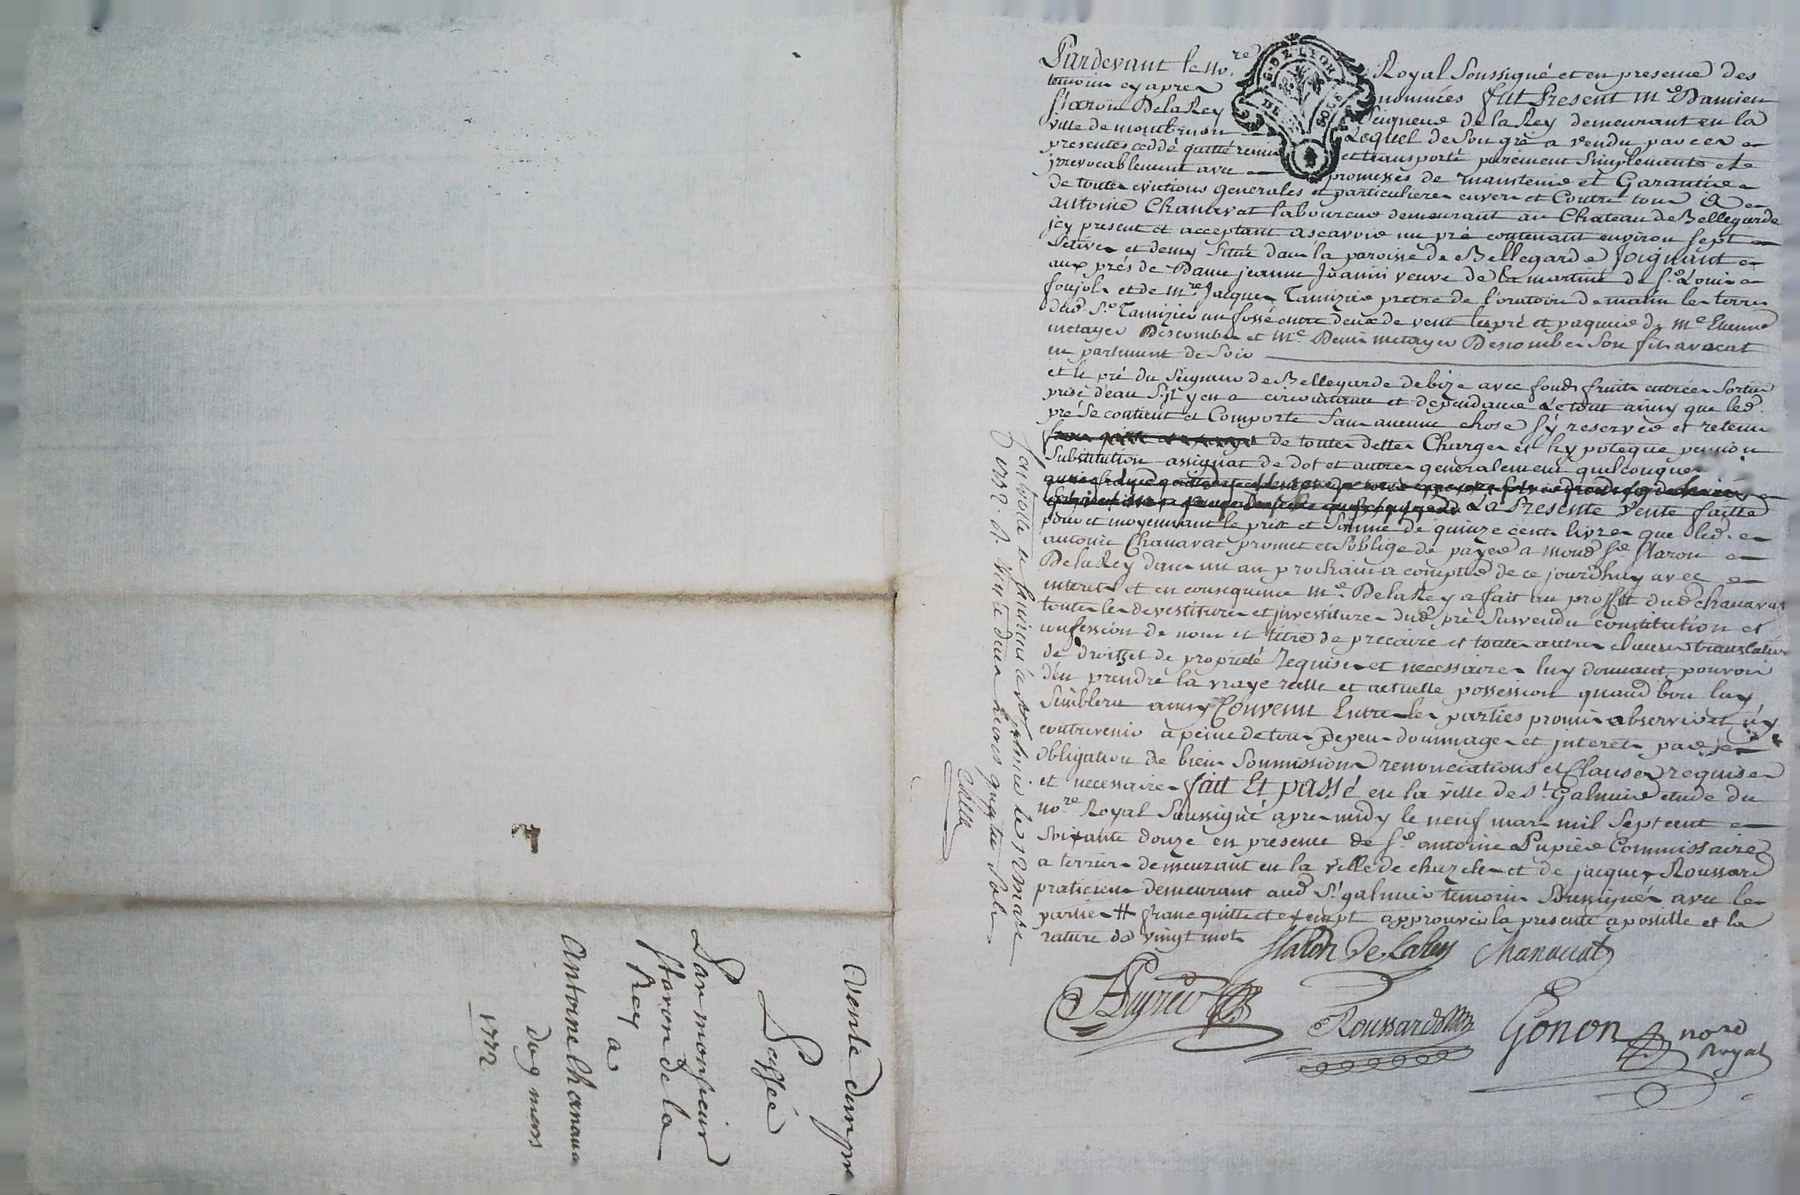 Pardevant le no.re Royal Soussigné et en presence des
temoins cy apres nommées fut Present m.e Damien
Staron De la Rey Seigneur de la Rey demeurant en la
ville de montbrison Lequel de Son gré a vendu par ces
presentes ceddé quitté remis et transporté purement Simplement et
irrevocablement avec promesses de maintenir et Garantir
de toutes evictions generales et particulieres envers et Contre tous A
antoine Chanavat laboureur demeurant au Chateau de Bellegarde
icy present et acceptant ascavoir un pré contenant environ Sept
et demy Situé dans la paroisse de Bellegarde Joignant
aux prés de Dame jeanne veuve de la martine de S.t Louis
foujols et de m.re Jacques Tamizier pretre de l'oratoire de matin les terres
dud. S.r Tamizier un fossé entre deux de vent les pré et paquier de m.e Etienne
metayer Descombes et m.e Denis metayer Descombes Son fils avocat
en parlement de Soir
et le pré du Seigneur de Bellegarde de bize avec fonds fruits entrées Sorties
prise d'eau S'il y en a circonstance et dependance Le tout ainsy que led.
pré Se contient et Comporte Sans aucune chose S'y reserver et retenir
de toutes dettes Charges et hypoteque pension
Substitution assignat de dot et autres generalement quelconques
La Presente Vente faitte
pour et moyennant le prix et Somme de quinze cents livres que led.
antoine Chanavat promet et S'oblige de payer a moud. S.r Staron
De la Rey dans un an prochain a compter de ce jourdhuy avec
interets et en consequence m.r De la Rey a fait au proffit dud. chanavat
toutes les devestitures et jnvestitures dud. pré Susvendu constitution et
confession de nom et titre de precaire et toutes autres clauses translatives
de droits et de propriété Requises et necessaires luy donnant pouvoir
d'en prendre la vraye reelle et actuelle possession quand bon luy
Semblera ainsy Convenu Entre les parties promis observer et n'y
contrevenir a peine de tous Depens dommages et interets par
obligation de biens Soumissions renonciations et Clauses requises
et necessaires fait Et passé en la ville de S.t Galmier etude du
no.re Royal Soussigné apres midy le neuf mars mil Sept cent
Soixante douze en presence de S.r antoine Pupier Commissaire
a terriers demeurant en la ville de chazelles et de jacques Roussard
praticien demeurant aud. S.t galmier temoins Soussignés avec les
parties # franc quitte et exempt approuvés la presente apostille et la
rature de vingt mots
Staron De la Rey Chanavat
Pupier Roussard Gonon no.re
Royal
1772
vingt deux livres quatre Sols
Vente d'un pre
Passée
Par monsieur
Staron de la
Rey
a
Antoine Chanava
du 9 mars
1772